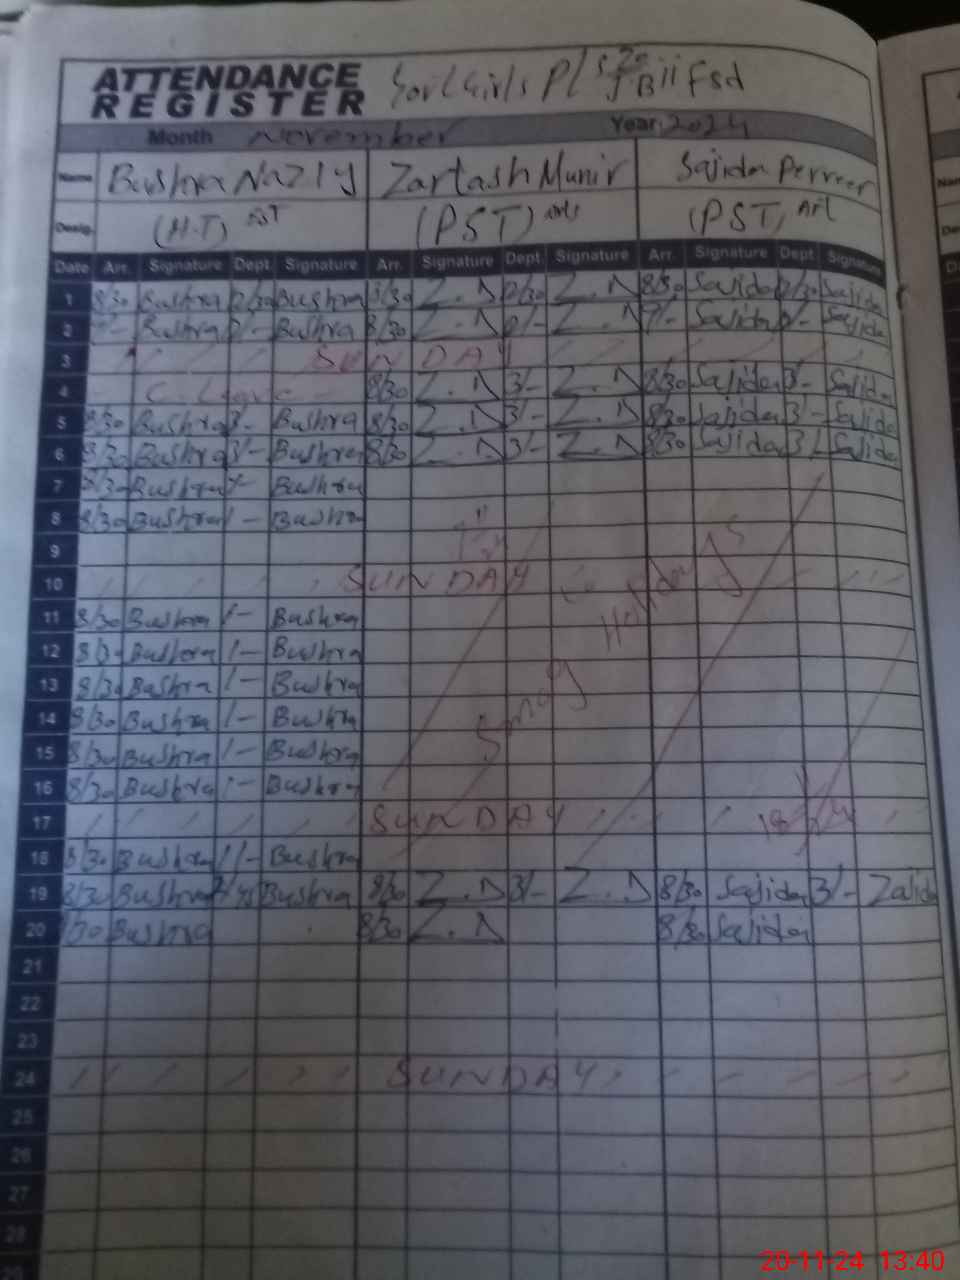 ATTENDANCE REGISTER Govt Girls P/S JB ii Fsd
Month November Year 2024
Name Bushra Nazly Zartash Munir Sajida Perveer
Desig. (H.T) EST (PST) arts (PST) Art
Date Arr. Signature Dept. Signature Arr. Signature Dept. Signature Arr. Signature Dept. Signature
1 8/30 Bushra 12/30 Bushra 8/30 Z.N 12/30 Z.N 8/30 Sajida 12/30 Sajida
2 Bushra Bushra 8/30 Z.N Z.N Sajida Sajida
3 SUNDAY
4 C. Leave 8/30 Z.N 3/- Z.N 8/30 Sajida 3/- Sajida
5 8/30 Bushra 3/- Bushra 8/30 Z.N 3/- Z.N 8/30 Sajida 3/- Sajida
6 8/30 Bushra 3/- Bushra 8/30 Z.N 3/- Z.N 8/30 Sajida 3/- Sajida
7 8/30 Bushra Bushra
8 8/30 Bushra 1- Bushra
9
10 SUNDAY
11 8/30 Bushra 1- Bushra
12 8/30 Bushra 1- Bushra
13 8/30 Bushra 1- Bushra
14 8/30 Bushra 1- Bushra
15 8/30 Bushra 1- Bushra
16 8/30 Bushra 1- Bushra
Smog Holidays
17 SUNDAY
18 8/30 Bushra 1/- Bushra
19 8/30 Bushra 2/45 Bushra 8/30 Z.N 3/- Z.N 8/30 Sajida 3/- Zajida
20 8/30 Bushra 8/30 Z.N 8/30 Sajida
21
22
23
24 SUNDAY
25
26
27
28
20-11-24 13:40